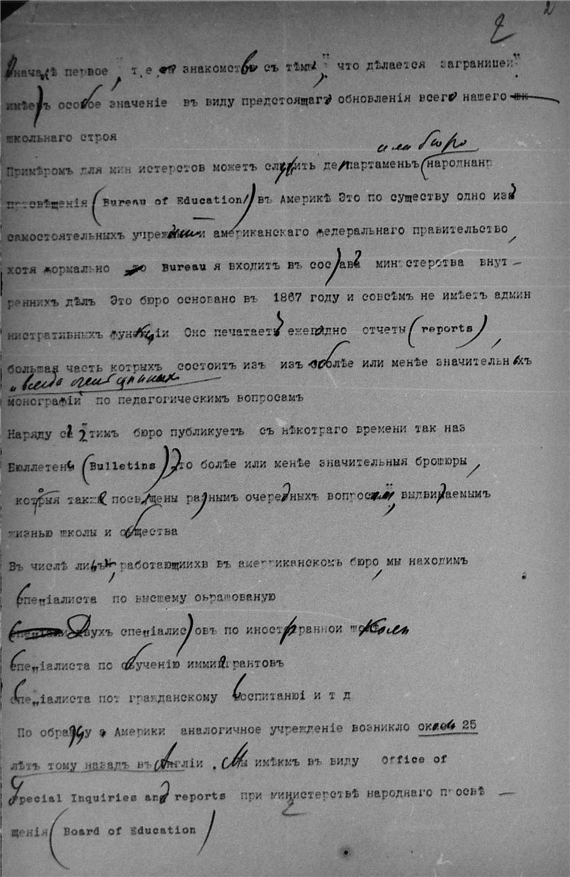 2
2
Вначалѣ первое, т.е. знакомство съ тѣмъ, "что дѣлается заграницей"
имѣетъ особое значеніе въ виду предстоящаго обновленія всего нашего
школьнаго строя
или бюро
Примѣромъ для мин истерствъ можетъ служить департаментъ (народнаго
просвѣщенія (Bureau of Education) въ Америкѣ Это по существу одно изъ
самостоятельныхъ учрежденій американскаго федеральнаго правительство,
хотя формально Bureau я входитъ въ составъ министерства внут-
реннихъ дѣлъ Это бюро основано въ 1867 году и совсѣмъ не имѣетъ админ
нистративныхъ функціи Оно печатаетъ ежегодно отчеты (reports),
большая часть котрыхъ состоитъ изъ изъ болѣе или менѣе значительныхъ
и всегда очень цѣнныхъ
монографій по педагогическимъ вопросамъ
Наряду съ этимъ бюро публикуетъ съ нѣкотраго времени так наз
Бюллетень (Bulletins) Это болѣе или менѣе значительныя брошюры,
которыя также посвящены разнымъ очереднымъ вопросамъ, выдвигаемымъ
жизнью школы и общества
Въ числѣ лицъ, работающиихв въ американскомъ бюро, мы находимъ
Спеціалиста по высшему образованую
Двухъ спеціалистовъ по иностранной школѣ
Спеціалиста по обученію иммигрантовъ
Спеціалиста пот гражданскому воспитанюі и т д
По образцу Америки аналогичное учрежденіе возникло около 25
лѣтъ тому назадъ въ Англіи. Мы имѣкмъ въ виду Office of
Special Inquiries and reports при министерствѣ народнаго просвѣ-
щенія (Board of Education)